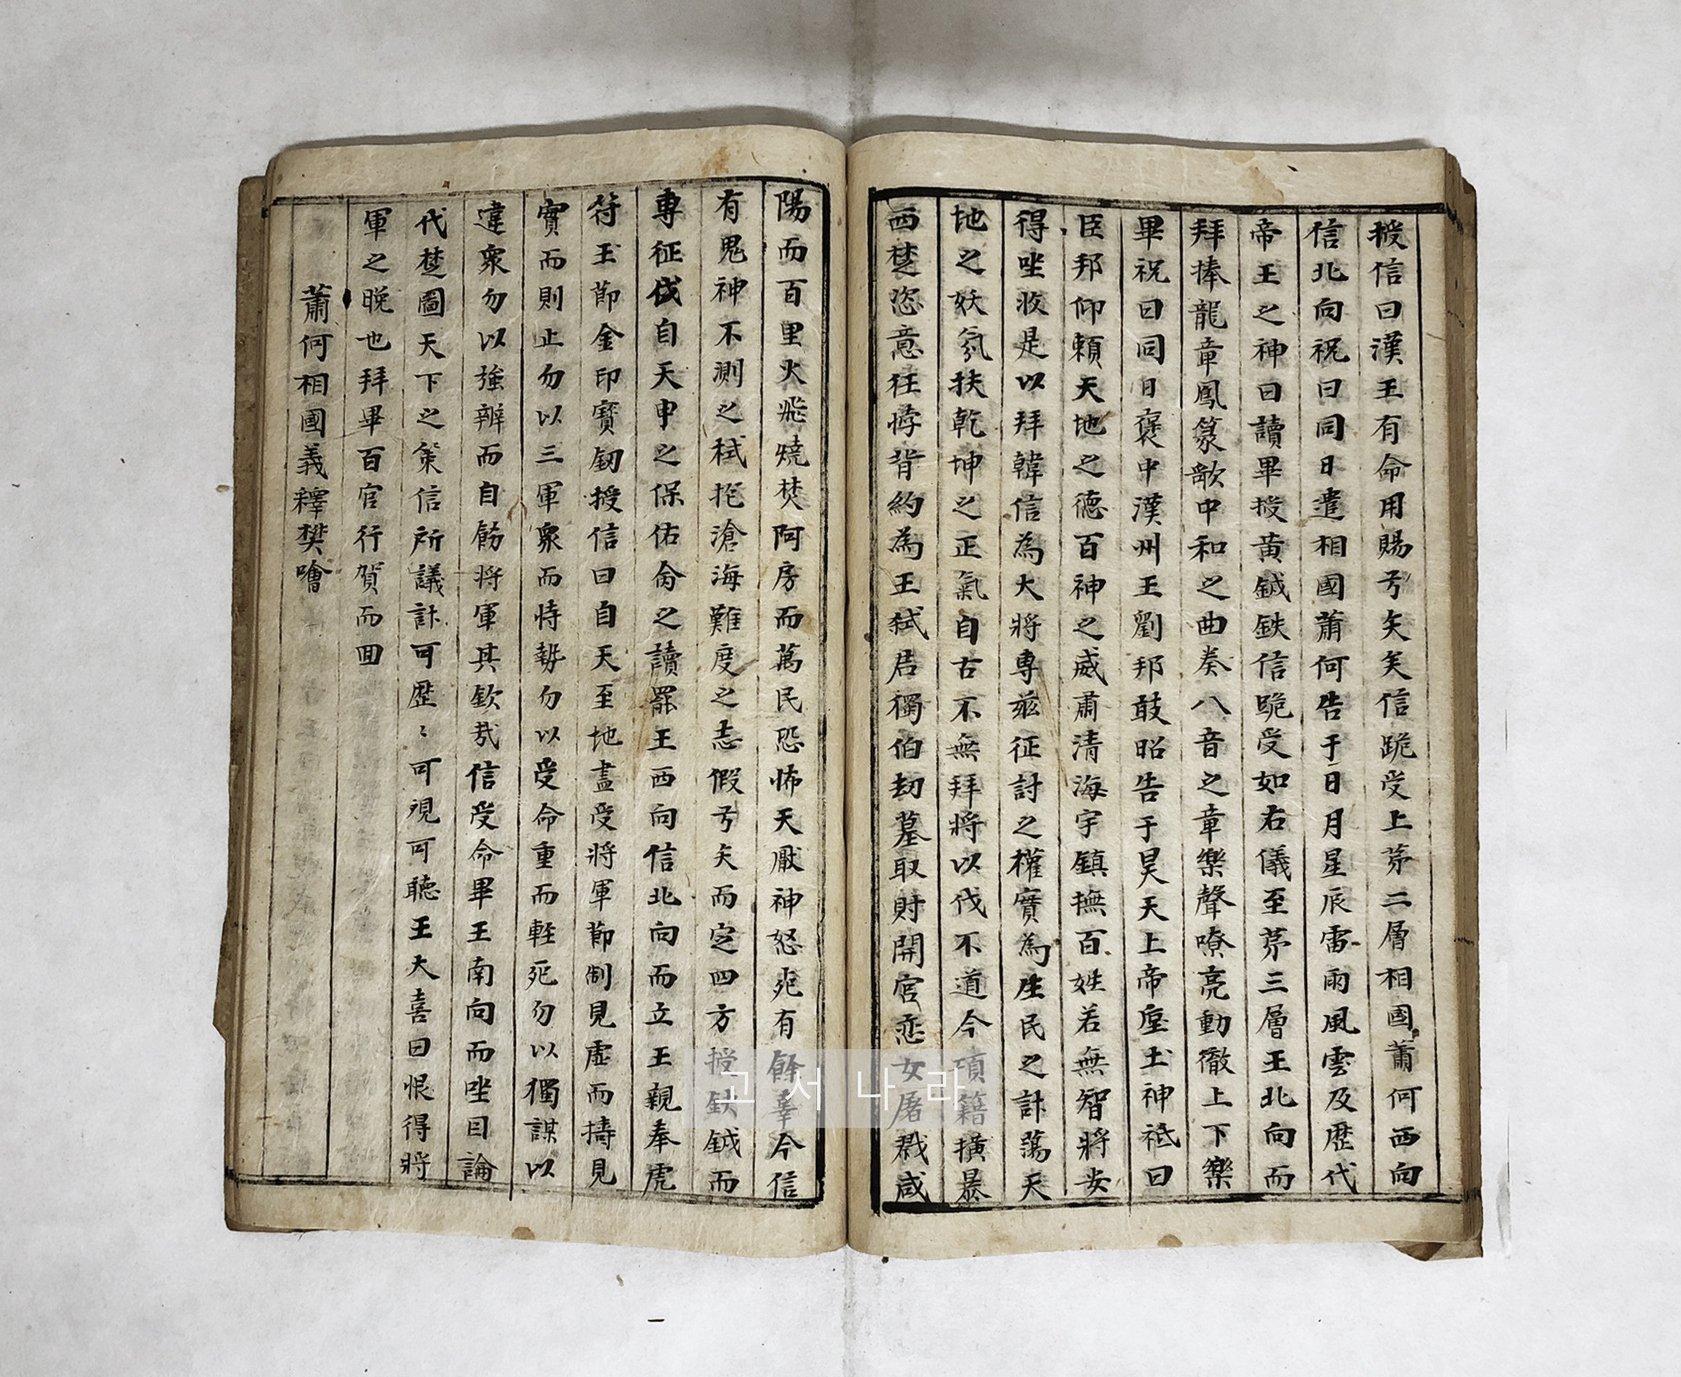 授信曰漢王有命用賜弓矢矣信跪受上苐二層相國蕭何西向
信北向祝曰同日遣相國蕭何告于日月星辰雷雨風雲及歷代
帝王之神曰讀畢授黃鉞鈇信跪受如右儀至苐三層王北向而
拜捧龍章鳳篆歌中和之曲奏八音之章樂聲嘹亮動徹上下樂
畢祝曰同日褒中漢州王劉邦敢昭告于昊天上帝垕土神祇曰
臣邦仰賴天地之德百神之威肅清海宇鎮撫百姓若無智將安
得坐收是以拜韓信為大將專玆征討之權實為生民之計蕩天
地之妖氛扶乾坤之正氣自古不無拜將以伐不道今項籍橫暴
西楚恣意狂悖背約為王弑君獨伯劫墓取財開宮恋女屠戮咸
陽而百里火飛燒焚阿房而萬民恐怖天厭神怒死有餘辜今信
有鬼神不測之栻抱滄海難度之志假弓矢而定四方授鈇鉞而
專征伐自天申之保佑侖之讀罷王西向信北向而立王親奉虎
符玉節金印寶劒授信曰自天至地盡受將軍節制見虛而擣見
實而則止勿以三軍衆而恃勢勿以受命重而輕死勿以獨謀以
違衆勿以強辨而自餙將軍其欽㦲信受命畢王南向而坐曰論
代楚圖天下之策信所議計可歷〻可視可聽王大喜曰恨得將
軍之晚也拜畢百官行賀而回
蕭何相國義釋樊噲
고서나라